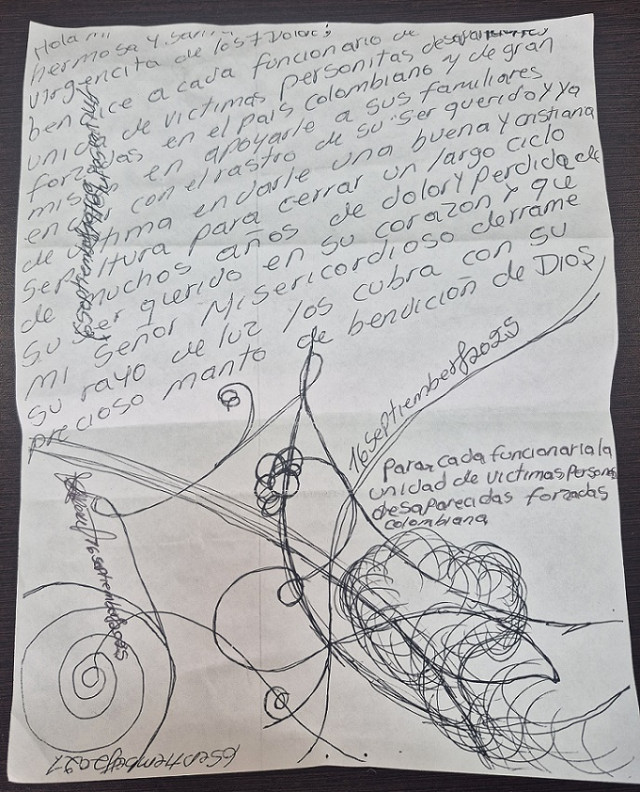 Hola !!!
hermosa y
virgencita de los 7 Dolores
bendice a cada funcionario de
unidad de victimas personitas desaparecidas
forzadas en el pais colombiano y de gran
misión en apoyarle a sus familiares
en con el rastro de su ser querido y ya
de ultima endarle una buena y cristiana
sepultura para cerrar un largo ciclo
de muchos años de dolor y perdida de
su ser querido en su corazon y que
mi señor Misericordioso derrame
su rayo de luz los cubra con su
precioso manto de bendición de DIOS
16 september/2025
Para cada funcionaria la
unidad de victimas Personas
desaparecidas forzadas
colombiana
16 september 2025